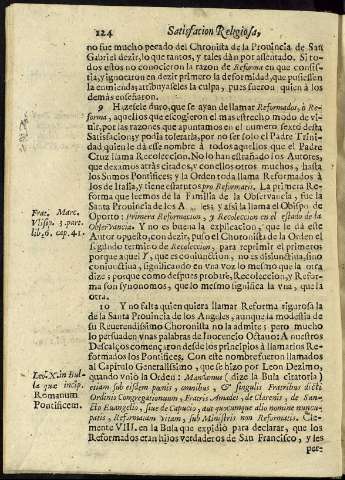 124 Satisfacion Religiosa,
no fue mucho pecado del Chronista de la Prouincia de San
Gabriel dezir, lo que tantos, y tales dàn por assentado. Si to-
dos estos no conocieron la razon de Reforma en que consis-
tia, y ignoraron en dezir primero la deformidad, que pusiessen
la enmienda; atribuyaseles la culpa, pues fueron quien à los
demàs enseñaron.
9 Hazesele duro, que se ayan de llamar Reformados, ò Re-
forma, aquellos que escogieron el mas estrecho modo de vi-
uir, por las razones que apuntamos en el numero sexto desta
Satisfacion; y podia tolerarla, por no ser solo el Padre Trini-
dad quien le dà esse nombre à todos aquellos que el Padre
Cruz llama Recoleccion. No lo han estrañado los Autores,
que dexamos atràs citados, y con ellos otros muchos, hasta
los Sumos Pontifices; y la Orden toda llama Reformados à
los de Italia, y tiene estatutos pro Reformatis. La primera Re-
forma que leemos de la Familia de la Obseruancia, fue la
Santa Prouincia de los A leia y assi la llama el Obispo de
Oporto: Primera Reformacion, y Recoleccion en el estado de la
Obseruancia. Y no es buena la explicacion, que le dà este
Autor opuesto, con dezir, puso el Choronista de la Orden el
segundo termino de Recoleccion, para reprimir el primero:
porque aquel Y, que es conjunction, no es disjunctiua, sino
conjunctiua, significando en vna voz lo mesmo que la otra
dize; porque como despues probarè, Recoleccion, y Refor-
ma son synonomos, que lo mesmo significa la vna, que la
otra.
Frac. Marc.
Vlisip. 3. part.
lib. 6. cap. 41.
10 Y no falta quien quiera llamar Reforma rigurosa la
de la Santa Prouincia de los Angeles, aunque la modestia de
su Reuerendissimo Choronista no la admite; pero mucho
lo persuaden vnas palabras de Inocencio Octauo: A nuestros
Descalços, començò desde los principios à llamarlos Re-
formados los Pontifices. Con este nombre fueron llamados
al Capitulo Generalissimo, que se hizo por Leon Dezimo,
quando vniò la Orden: Mandamus (dize la Bula citatoria)
etiam sub eisdem pœnis, omnibus, & singulis Fratribus dicti
Ordinis Congregationum, Fratris Amadei, de Clarenis, de San-
cto Euangelio, siue de Capucio, aut quocumque alio nomine nuncu-
patis, Reformatam vitam, sub Ministris non Reformatis. Cle-
mente VIII. en la Bula que expidiò para declarar, que los
Reformados eran hijos verdaderos de San Francisco, y les
Leo X. in Bul-
la que incip.
Romanum
Pontificem.
per-